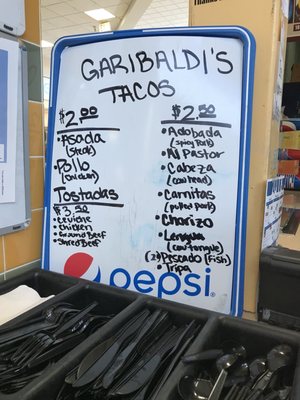 GARIBALDI'S
TACOS
$2.00
• Asada
(steak)
• Pollo
(chicken)
Tostadas
$3.50
• ceviche
• chicken
• Ground Beef
• Shred Beef
$2.50
• Adobada
(spicy Pork)
• Al Pastor
• Cabeza
(cow head)
• Carnitas
(pulled pork)
• Chorizo
• Lengua
(cow tongue)
• Pescado (Fish)
• Tripa
pepsi